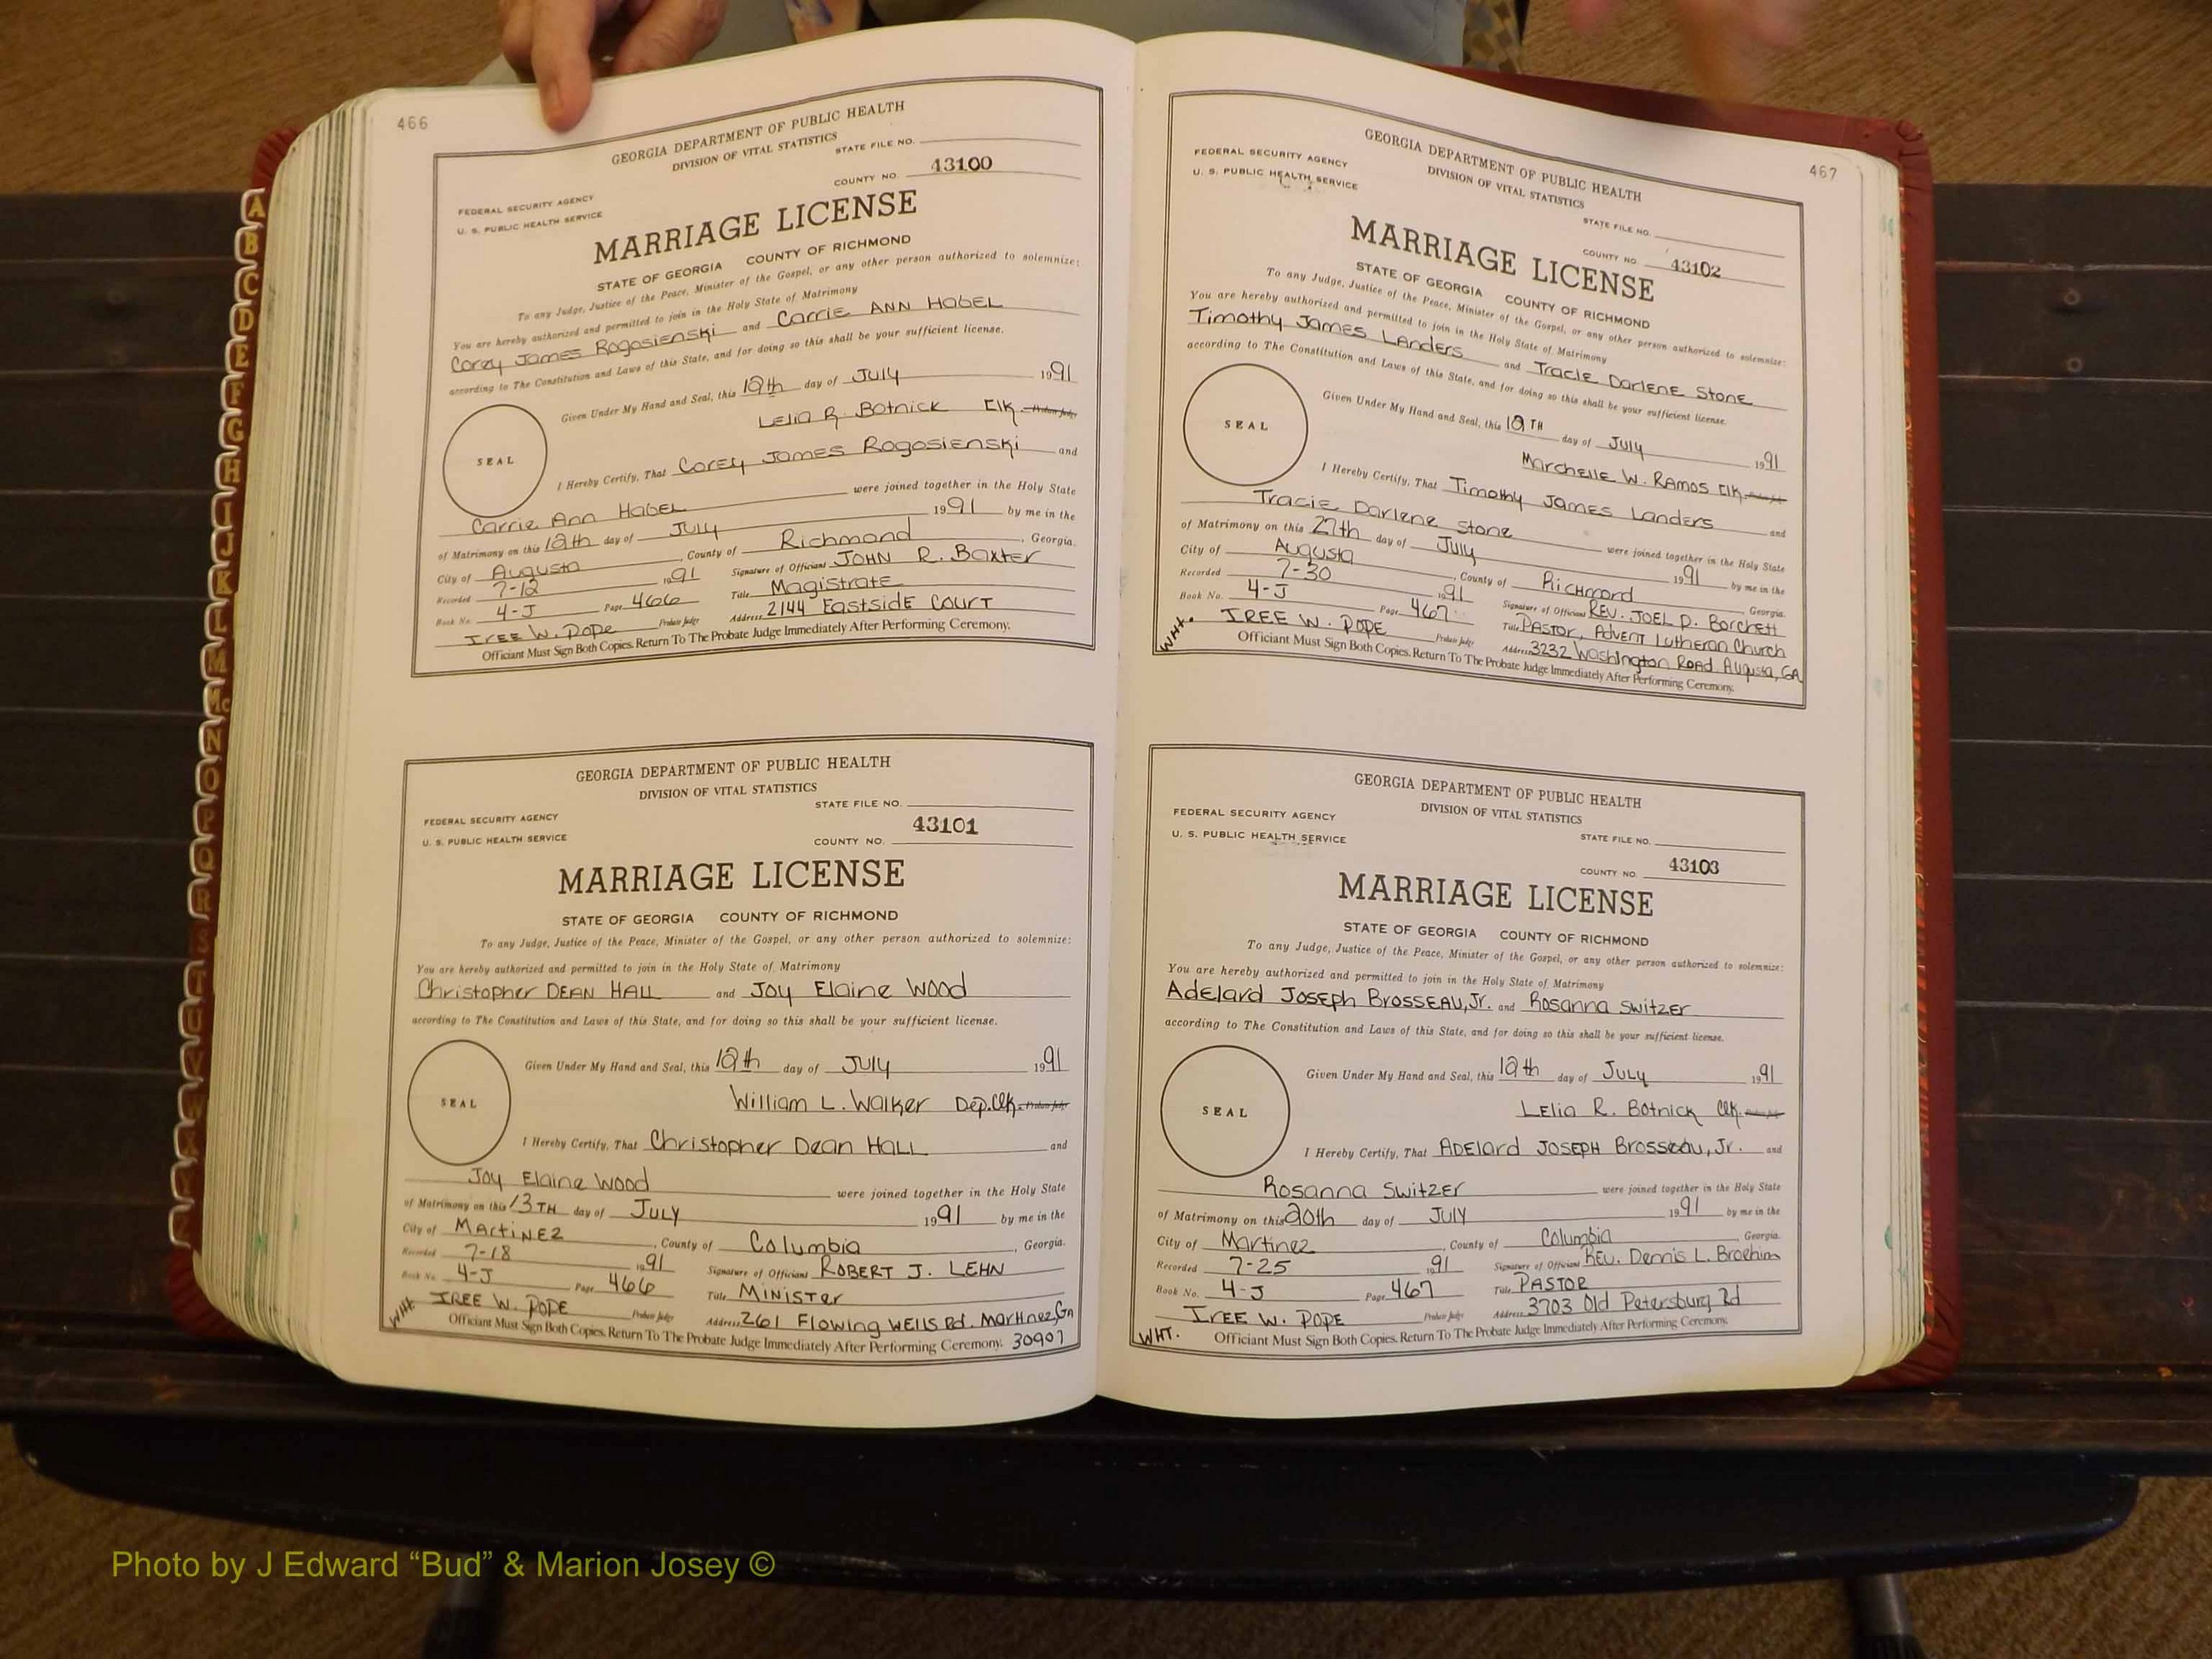 466
GEORGIA DEPARTMENT OF PUBLIC HEALTH
DIVISION OF VITAL STATISTICS
STATE FILE NO.
FEDERAL SECURITY AGENCY
U. S. PUBLIC HEALTH SERVICE
COUNTY NO. 43100
MARRIAGE LICENSE
STATE OF GEORGIA COUNTY OF RICHMOND
To any Judge, Justice of the Peace, Minister of the Gospel, or any other person authorized to solemnize:
You are hereby authorized and permitted to join in the Holy State of Matrimony
Corey James Rogosienski and Carrie ANN HabEL
according to The Constitution and Laws of this State, and for doing so this shall be your sufficient license.
Given Under My Hand and Seal, this 12th day of July 1991
LElia R. Botnick Clk. Probate Judge
SEAL
I Hereby Certify, That Corey JamEs RogosiEnski and
Carrie Ann HabEL were joined together in the Holy State
of Matrimony on this 12th day of July 1991 by me in the
City of Augusta, County of Richmond, Georgia.
Recorded 7-12 1991 Signature of Officiant JOHN R. BaxtEr
Book No. 4-J Page 466 Title MagistratE
IREE W. POPE Probate Judge Address 2144 EastsidE Court
Officiant Must Sign Both Copies. Return To The Probate Judge Immediately After Performing Ceremony.
GEORGIA DEPARTMENT OF PUBLIC HEALTH
DIVISION OF VITAL STATISTICS
STATE FILE NO.
FEDERAL SECURITY AGENCY
U. S. PUBLIC HEALTH SERVICE
COUNTY NO. 43101
MARRIAGE LICENSE
STATE OF GEORGIA COUNTY OF RICHMOND
To any Judge, Justice of the Peace, Minister of the Gospel, or any other person authorized to solemnize:
You are hereby authorized and permitted to join in the Holy State of Matrimony
Christopher DEAN HALL and Joy Elaine Wood
according to The Constitution and Laws of this State, and for doing so this shall be your sufficient license.
Given Under My Hand and Seal, this 12th day of July 1991
William L. Walker Dep.Clk. Probate Judge
SEAL
I Hereby Certify, That Christopher Dean HALL and
Joy Elaine Wood were joined together in the Holy State
of Matrimony on this 13TH day of JULY 1991 by me in the
City of MArtiNEz, County of Columbia, Georgia.
Recorded 7-18 1991 Signature of Officiant ROBERT J. LEHN
Book No. 4-J Page 466 Title MINISTEr
WHT IREE W. POPE Probate Judge Address 261 Flowing WElls Rd. Martinez, GA
Officiant Must Sign Both Copies. Return To The Probate Judge Immediately After Performing Ceremony. 30907
467
GEORGIA DEPARTMENT OF PUBLIC HEALTH
DIVISION OF VITAL STATISTICS
FEDERAL SECURITY AGENCY
U. S. PUBLIC HEALTH SERVICE
STATE FILE NO.
COUNTY NO. 43102
MARRIAGE LICENSE
STATE OF GEORGIA COUNTY OF RICHMOND
To any Judge, Justice of the Peace, Minister of the Gospel, or any other person authorized to solemnize:
You are hereby authorized and permitted to join in the Holy State of Matrimony
Timothy JamEs LAndErs and TraciE DarlEnE StonE
according to The Constitution and Laws of this State, and for doing so this shall be your sufficient license.
Given Under My Hand and Seal, this 12TH day of July 1991
MarchEllE W. RAmos Clk. Probate Judge
SEAL
I Hereby Certify, That Timothy JamEs LandErs and
TraciE DarlEnE StonE were joined together in the Holy State
of Matrimony on this 27th day of July 1991 by me in the
City of Augusta, County of RiCHmond, Georgia.
Recorded 7-30 1991 Signature of Officiant REV. JOEL D. Borchett
Book No. 4-J Page 467 Title PASTOR, AdvENT LuthEran Church
WHT. IREE W. POPE Probate Judge Address 3232 Washington ROAd Augusta, GA
Officiant Must Sign Both Copies. Return To The Probate Judge Immediately After Performing Ceremony.
GEORGIA DEPARTMENT OF PUBLIC HEALTH
DIVISION OF VITAL STATISTICS
FEDERAL SECURITY AGENCY
U. S. PUBLIC HEALTH SERVICE
STATE FILE NO.
COUNTY NO. 43103
MARRIAGE LICENSE
STATE OF GEORGIA COUNTY OF RICHMOND
To any Judge, Justice of the Peace, Minister of the Gospel, or any other person authorized to solemnize:
You are hereby authorized and permitted to join in the Holy State of Matrimony
AdElard JOSEph BrOSSEAU, Jr. and Rosanna SwitzEr
according to The Constitution and Laws of this State, and for doing so this shall be your sufficient license.
Given Under My Hand and Seal, this 12th day of July 1991
LElia R. Botnick Clk. Probate Judge
SEAL
I Hereby Certify, That ADElard JOSEPH Brosseau, Jr. and
Rosanna SwitzEr were joined together in the Holy State
of Matrimony on this 20th day of JULY 1991 by me in the
City of Martinez, County of Columbia Georgia.
Recorded 7-25 1991 Signature of Officiant REV. Dennis L.
Book No. 4-J Page 467 Title PASTOR
IREE W. POPE Probate Judge Address 3703 Old Petersburg Rd
WHT. Officiant Must Sign Both Copies. Return To The Probate Judge Immediately After Performing Ceremony.
A
B
C
D
E
F
G
H
I
J
K
L
M
Mc
N
O
P
Q
R
S
T
Photo by J Edward “Bud” & Marion Josey ©